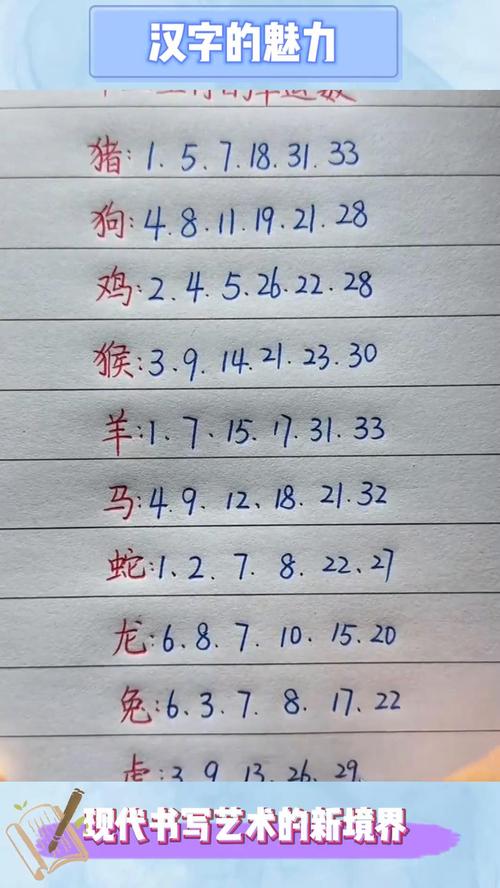 汉字的魅力
十二生肖的幸运数
猪:1.5.7.18.31.33
狗:4.8.11.19.21.28
鸡:2.4.5.26.22.28
猴:3.9.14.21.23.30
羊:1.7.15.17.31.33
马:4.9.12.18.21.32
蛇:1.2.7.8.22.27
龙:6.8.7.10.15.20
兔:6.3.7.8.17.22
虎:3.9.13.26.29
现代书写艺术的新境界